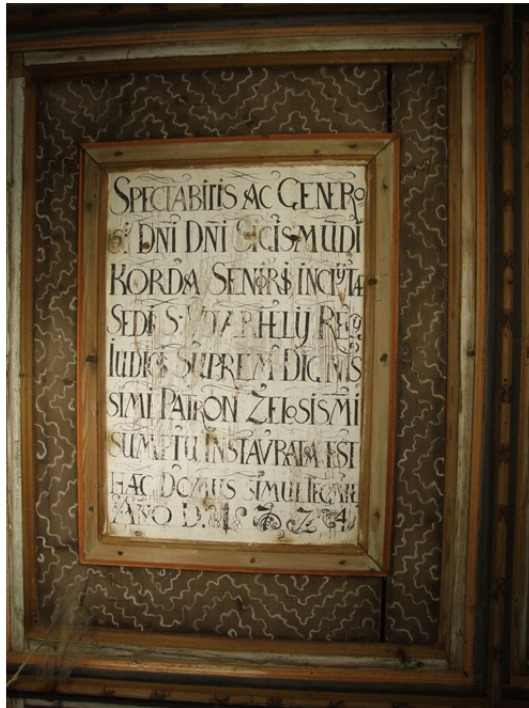 SPECTABILIS AC GENERO
SI DNI DNI SIGISMUDI
KORDA SENIORIS INCLYTÆ
SEDIS S. UDVARHELIJ REGIJ
IUDICIS SUPREMI DIGNIS
SIMI PATRON ZELOSISMI
SUMPTU INSTAVRATA EST
HAC DOMUS SIMUL TEMPLI
AÑO D. 1